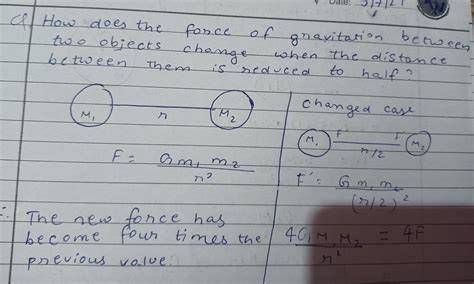 Date: 3/7/21
Q. How does the force of gravitation between
two objects change when the distance
between them is reduced to half?
M₁ r M₂
F = Gm₁ m₂
r²
Changed case
M₁ F' F M₂
r/2
F' = G m₁ m₂
(r/2)²
The new force has
become four times the
previous value.
4G M₁ M₂ = 4F
r²